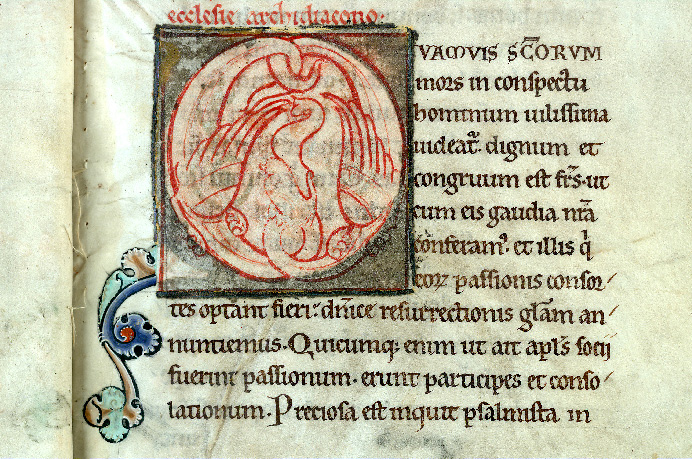 ecclesie archidiacono
VAMVIS SC̅ORVM
mors in conspectu
hominum uilissima
uideat᷑. dignum et
congruum est fr̅s. ut
cum eis gaudia nr̅a
conferam᷒. et illis q̅
eoꝝ passionis consor-
tes optant fieri: dn̅ice resurrectionis gl̅am an-
nuntiemus. Quicumq; enim ut ait apl̅s socij
fuerint passionum. erunt participes et conso-
lationum. Preciosa est inquit psalmista in